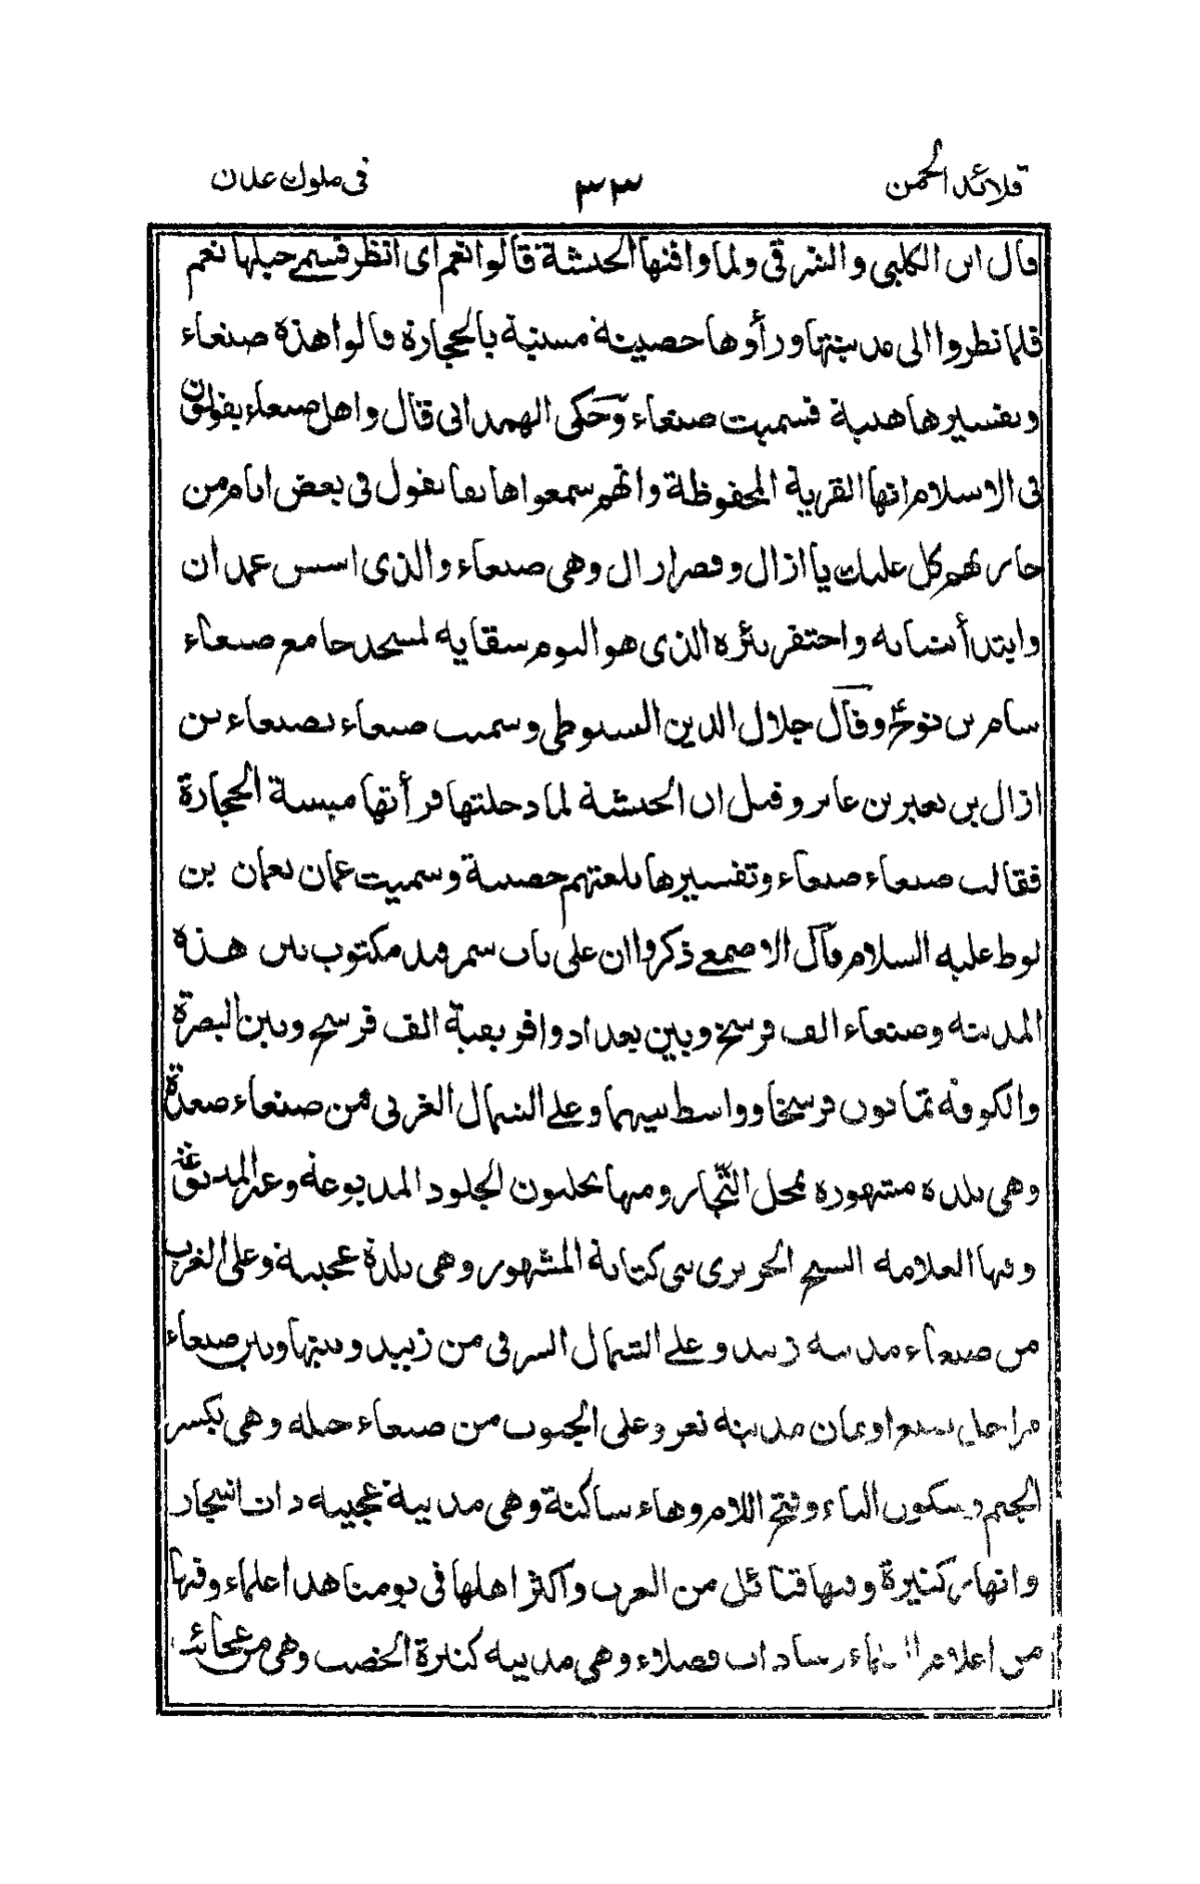 قلائد الجمن ٣٣ فى ملوك عدن
قال ابن الكلبى والشرقى ولما وافتها الحبشة قالوا نعم اى انظر فسمى جبلها نعم
فلما نظروا الى مدينتها ورأوها حصينة مبنية بالحجارة قالوا هذه صنعاء
وتفسيرها هينة فسميت صنعاء وحكى الهمدانى قال واهل صنعاء يقولون
فى الاسلام انها القرية المحفوظة وانهم سمعوا هاتفا يقول فى بعض ايام من
حاربهم كل عليك يا ازال وقصر ازال وهى صنعاء والذى اسس غمدان
وابتدأ بنيانه واحتفر بئره الذى هو اليوم سقاية لمسجد جامع صنعاء
سام بن نوح وقال جلال الدين السيوطى وسميت صنعاء بصنعاء بن
ازال بن يعبر بن عابر وقيل ان الحبشة لما دخلتها فرأتها مبنية الحجارة
فقالت صنعاء صنعاء وتفسيرها بلغتهم حصينة وسميت عمان بعمان بن
لوط عليه السلام قال الاصمعى ذكروا ان على باب سمرقند مكتوب بين هذه
المدينة وصنعاء الف فرسخ وبين بغداد وافريقية الف فرسخ وبين البصرة
والكوفة ثمانون فرسخا وواسط بينهما وعلى الشمال الغربى من صنعاء صعدة
وهى بلدة مشهورة محل التجار ومنها يجلبون الجلود المدبوغة وعز المدبوغة
وفيها العلامة الشيخ الحريرى فى كتابه المشهور وهى بلدة عجيبة وعلى الغرب
من صنعاء مدينة زبيد وعلى الشمال الشرقى من زبيد وبينها وبين صنعاء
مراحل سبع اوثمان مدينة تعز وعلى الجنوب من صنعاء جبلة وهى بكسر
الجيم وسكون الباء وفتح اللام وهاء ساكنة وهى مدينة عجيبة ذات اشجار
وانهار كثيرة وفيها قبائل من العرب واكثر اهلها فى يومنا هذا علماء وفيها
من اعلام العلماء سادات فضلاء وهى مدينة كثيرة الخصب وهى من عجائب